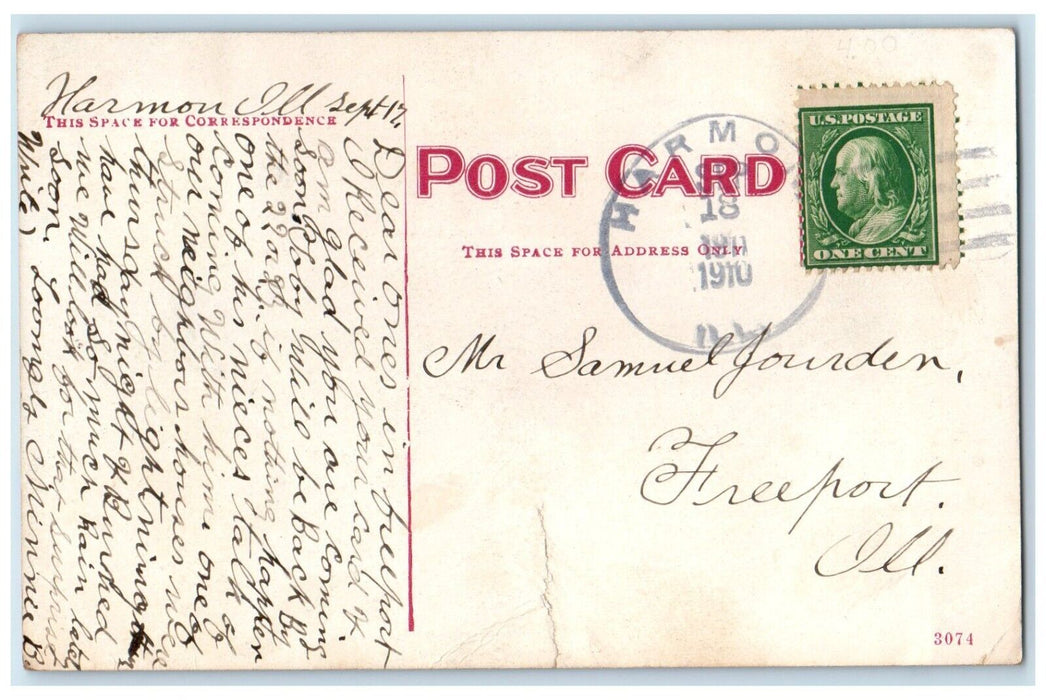 Harmon Ill Sept 17,
THIS SPACE FOR CORRESPONDENCE
Dear Ones in freeport
I Received your card &
am glad you are coming
soon, bobby will be Back by
the 22 or if nothing happen
one of his nieces talk of
coming with him one of
our neighbours houses was
Struck by lightning
thursday night & Burned
have had so much Rain lately
we will look for that surprise
soon. Loongls Minnie B.
Write
POST CARD
THIS SPACE FOR ADDRESS ONLY
HARMON
18
1910
ILL.
U.S. POSTAGE
ONE CENT
400
Mr Samuel Jourden,
Freeport.
Ill.
3074